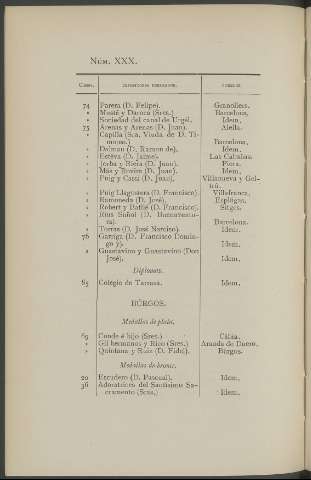 NÚM. XXX.
CLASES. EXPOSITORES PREMIADOS. PUEBLOS.
74 Parera (D. Felipe). Granollers.
» Musté y Daroca (Sres.) Barcelona.
» Sociedad del canal de Urgel. Idem.
75 Arenas y Arenas (D. Juan). Alella.
» Capilla (Sra. Viuda de D. Ti-
moteo.) Barcelona.
» Dalmau (D. Ramon de). Idem.
» Esteva (D. Jaime). Las Cabañas.
» Jorba y Riera (D. Juan). Piera.
» Más y Rovira (D. Juan). Idem.
» Puig y Cassi (D. Juan). Villanueva y Gel-
trú.
» Puig Llagostera (D. Francisco). Villafranca.
» Ramoneda (D. José). Esplugas.
» Robert y Batllé (D. Francisco). Sitges.
» Rius Suñol (D. Buenaventu-
ra). Barcelona.
» Torras (D. José Narciso). Idem.
76 Garriga (D. Francisco Domin-
go y). Idem.
» Guastavino y Guastavino (Don
José). Idem.
Diploma.
85 Colegio de Tarrasa. Idem.
BÚRGOS.
Medallas de plata.
69 Conde é hijo (Sres.)
» Gil hermanos y Rico (Sres.) Aranda de Duero.
» Quintana y Ruiz (D. Fidel). Búrgos.
Medallas de bronce.
20 Escudero (D. Pascual). Idem.
36 Adoratrices del Santísimo Sa-
cramento (Sras.) Idem.